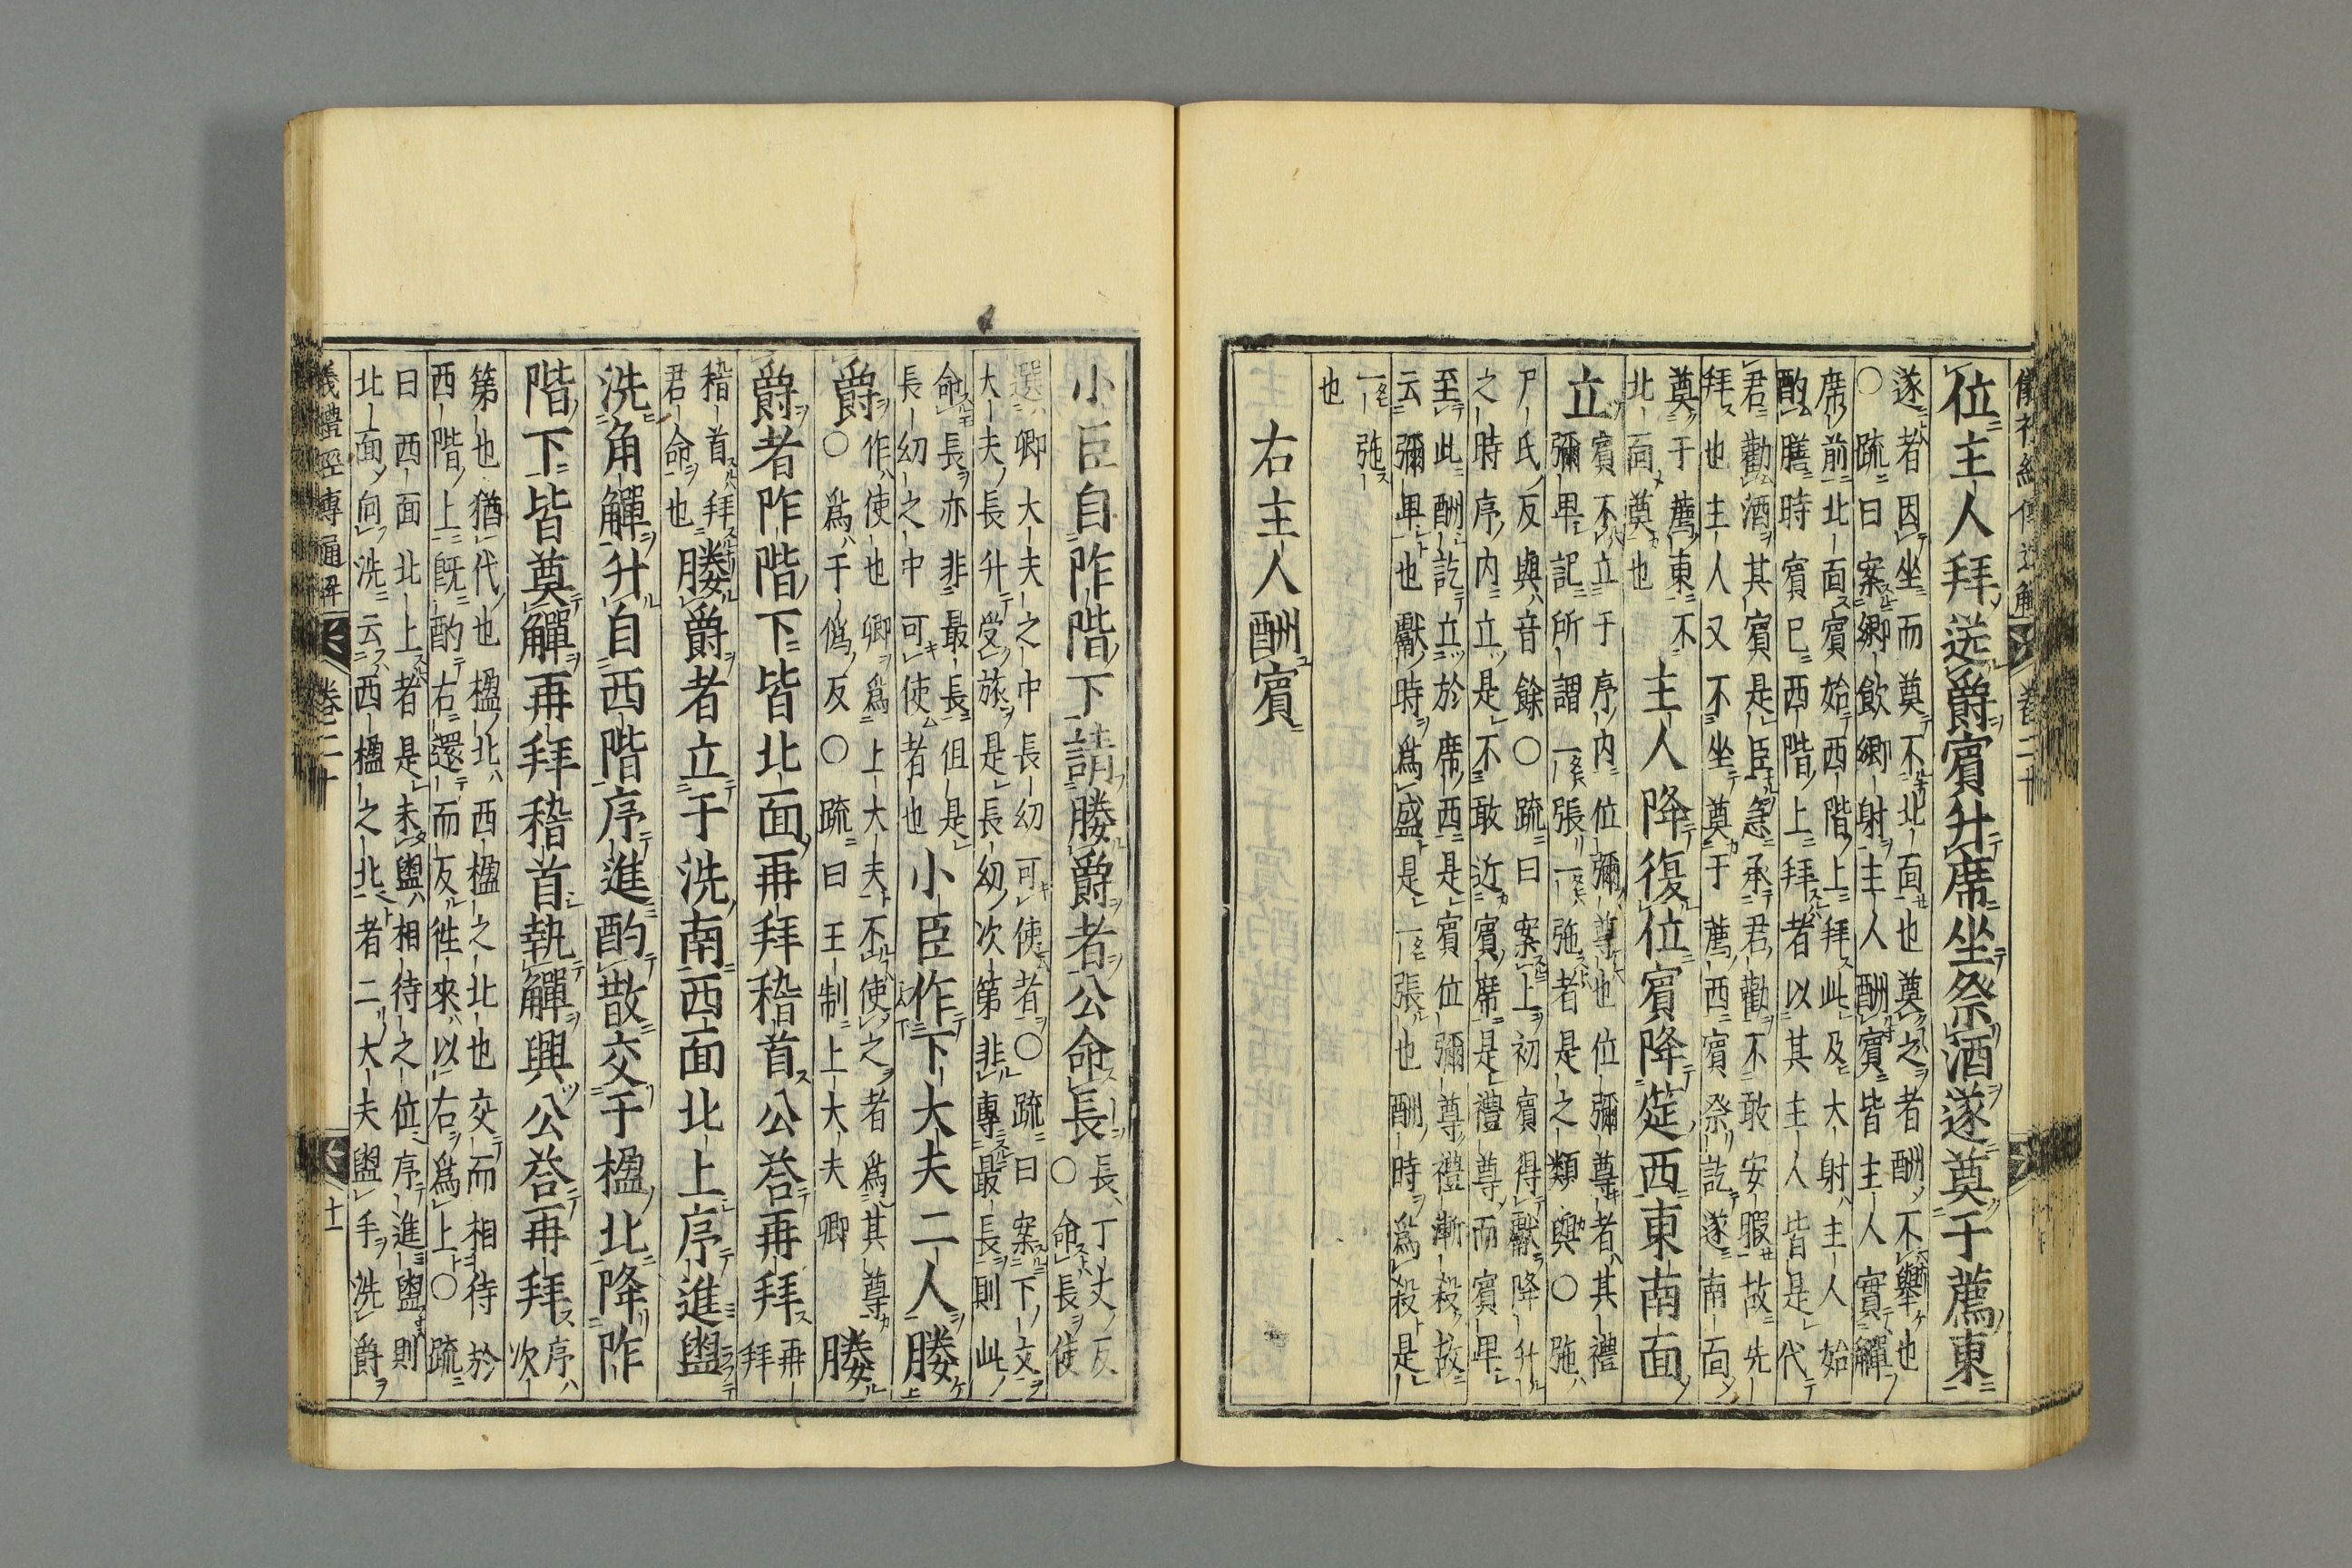 儀禮經傳通解 卷二十
位主人拜送爵賓升席坐祭酒遂奠于薦東
遂者因坐而奠不北面也奠之者酬不舉也
○疏曰案鄉飲鄉射主人酬賓皆主人實觶
席前北面賓始西階上拜此及大射主人始
酌膳時賓已西階上拜者以其主人皆是代
君勸酒其賓是臣急承君勸不敢安暇故先
拜也主人又不坐奠于薦西賓祭訖遂南面
奠于薦東不
北面奠也
主人降復位賓降筵西東南面
立
賓不立于序內位彌尊也位彌尊者其禮
彌卑記所謂一張一弛者是之類與○弛
尸氏反與音餘○疏曰案上初賓得獻降升
之時序內立是不敢近賓席是禮尊而賓卑
至此酬訖立於席西是賓位彌尊禮漸殺故
云彌卑也獻時爲盛是一張也酬時爲殺是
一弛
也
右主人酬賓
小臣自阼階下請媵爵者公命長
長丁丈反
○命長使
選卿大夫之中長幼可使者○疏曰案下文
大夫長升受旅是長幼次第非專最長則此
命長亦非最長但是
長幼之中可使者也
小臣作下大夫二人媵
爵
作使也卿爲上大夫不使之者爲其尊
○爲于僞反○疏曰王制上大夫卿
媵
爵者阼階下皆北面再拜稽首公荅再拜
再拜
稽首拜
君命也
媵爵者立于洗南西面北上序進盥
洗角觶升自西階序進酌散交于楹北降阼
階下皆奠觶再拜稽首執觶興公荅再拜
序次
第也猶代也楹北西楹之北也交而相待於
西階上旣酌右還而反徃來以右爲上○疏
曰西面北上者是未盥相待之位序進盥則
北面向洗云西楹之北者二大夫盥手洗爵
儀禮經傳通解 卷二十 十一